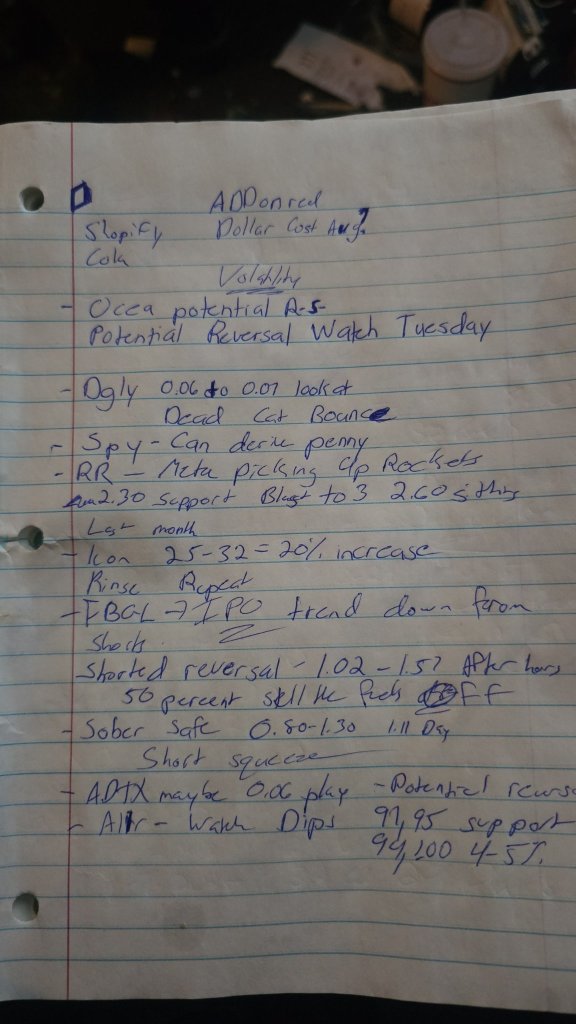 ADD on red
Shopify Dollar Cost Avg?
Cola
Volatility
- Ocea potential R-S
Potential Reversal Watch Tuesday
- Dgly 0.06 to 0.07 look at
Dead Cat Bounce
- Spy - Can derive penny
- RR - Meta picking Up Rockets
2.30 support Blast to 3 2.60 sitting
Last month
- Icon 25-32 = 20% increase
Rinse Repeat
- FBGL → IPO trend down from
Shorts
Shorted reversal - 1.02 - 1.57 After hours
50 percent sell the fuck OFF
- Sober Safe 0.80-1.30 1.11 Day
Short squeeze
- ADTX maybe 0.06 play - Potential
- Watch Dips 91,95 support
94,100 4-5%